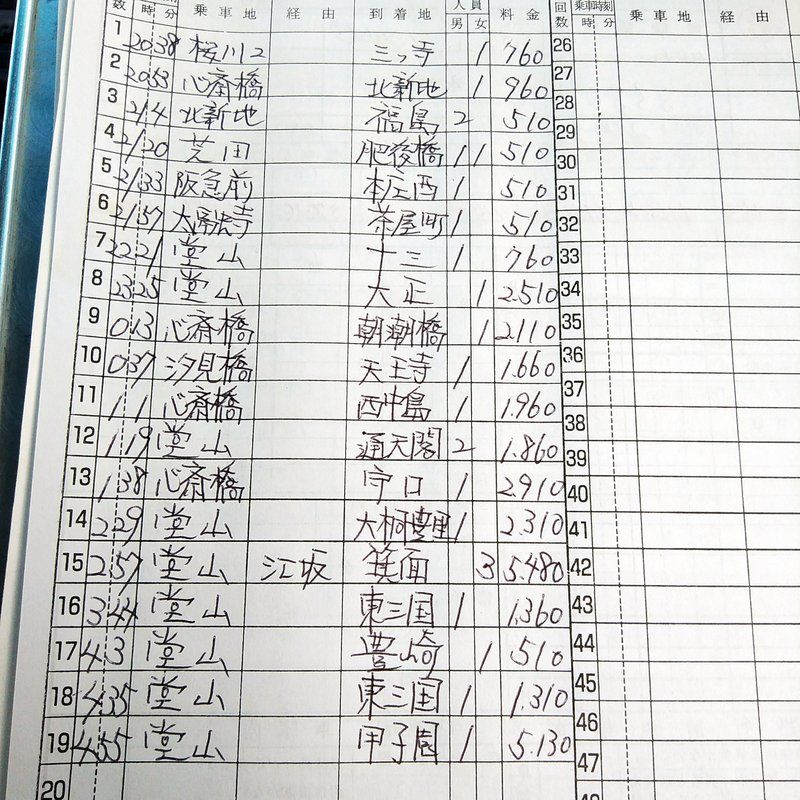 数 時 分 乗車地 経由 到着地 人員 男 女 料金 回数 乗車時刻 時 分 乗車地 経由
1 20 38 桜川2 三ッ寺 1 760 26
2 20 53 心斎橋 北新地 1 960 27
3 21 4 北新地 福島 2 510 28
4 21 20 芝田 肥後橋 1 1 510 29
5 21 33 阪急前 本庄西 1 510 30
6 21 37 茶屋町 1 510 31
7 22 21 堂山 十三 1 760 32
8 23 25 堂山 大正 1 2.510 33
9 0 13 心斎橋 朝潮橋 1 2.110 34
10 0 37 汐見橋 天王寺 1 1.660 35
11 1 1 心斎橋 西中島 1 1.960 36
12 1 19 堂山 通天閣 2 1.860 37
13 1 38 心斎橋 守口 1 2.910 38
14 2 29 堂山 大桐豊里 1 2.310 39
15 2 57 堂山 江坂 箕面 3 5.480 40
16 3 44 堂山 東三国 1 1.360 41
17 4 3 堂山 豊崎 1 510 42
18 4 35 堂山 東三国 1 1.310 43
19 4 55 堂山 甲子園 1 5.130 44
20 45
46
47